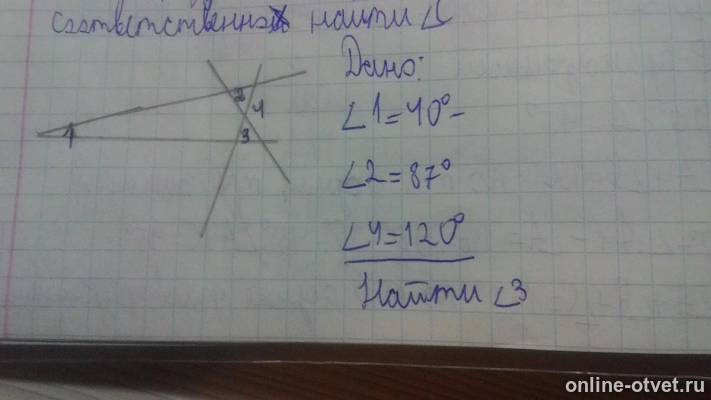 соответственно найти ∠
Дано:
∠1=40°
2
4
∠2=87°
1
3
∠4=120°
Найти ∠3
online-otvet.ru